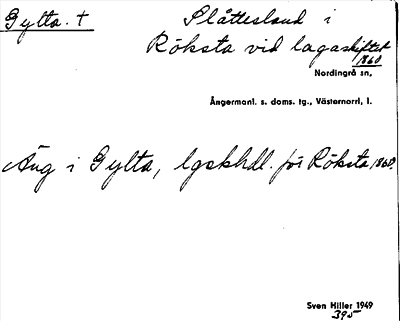 Gylta. †
Slåttesland i
Röksta vid lagaskiftet
1860
Nordingrå sn,
Ångermanl. s. doms. tg., Västernorrl, l.
Äng i Gylta, lgskhdl. för Röksta, 1860.
Sven Hiller 1949
395